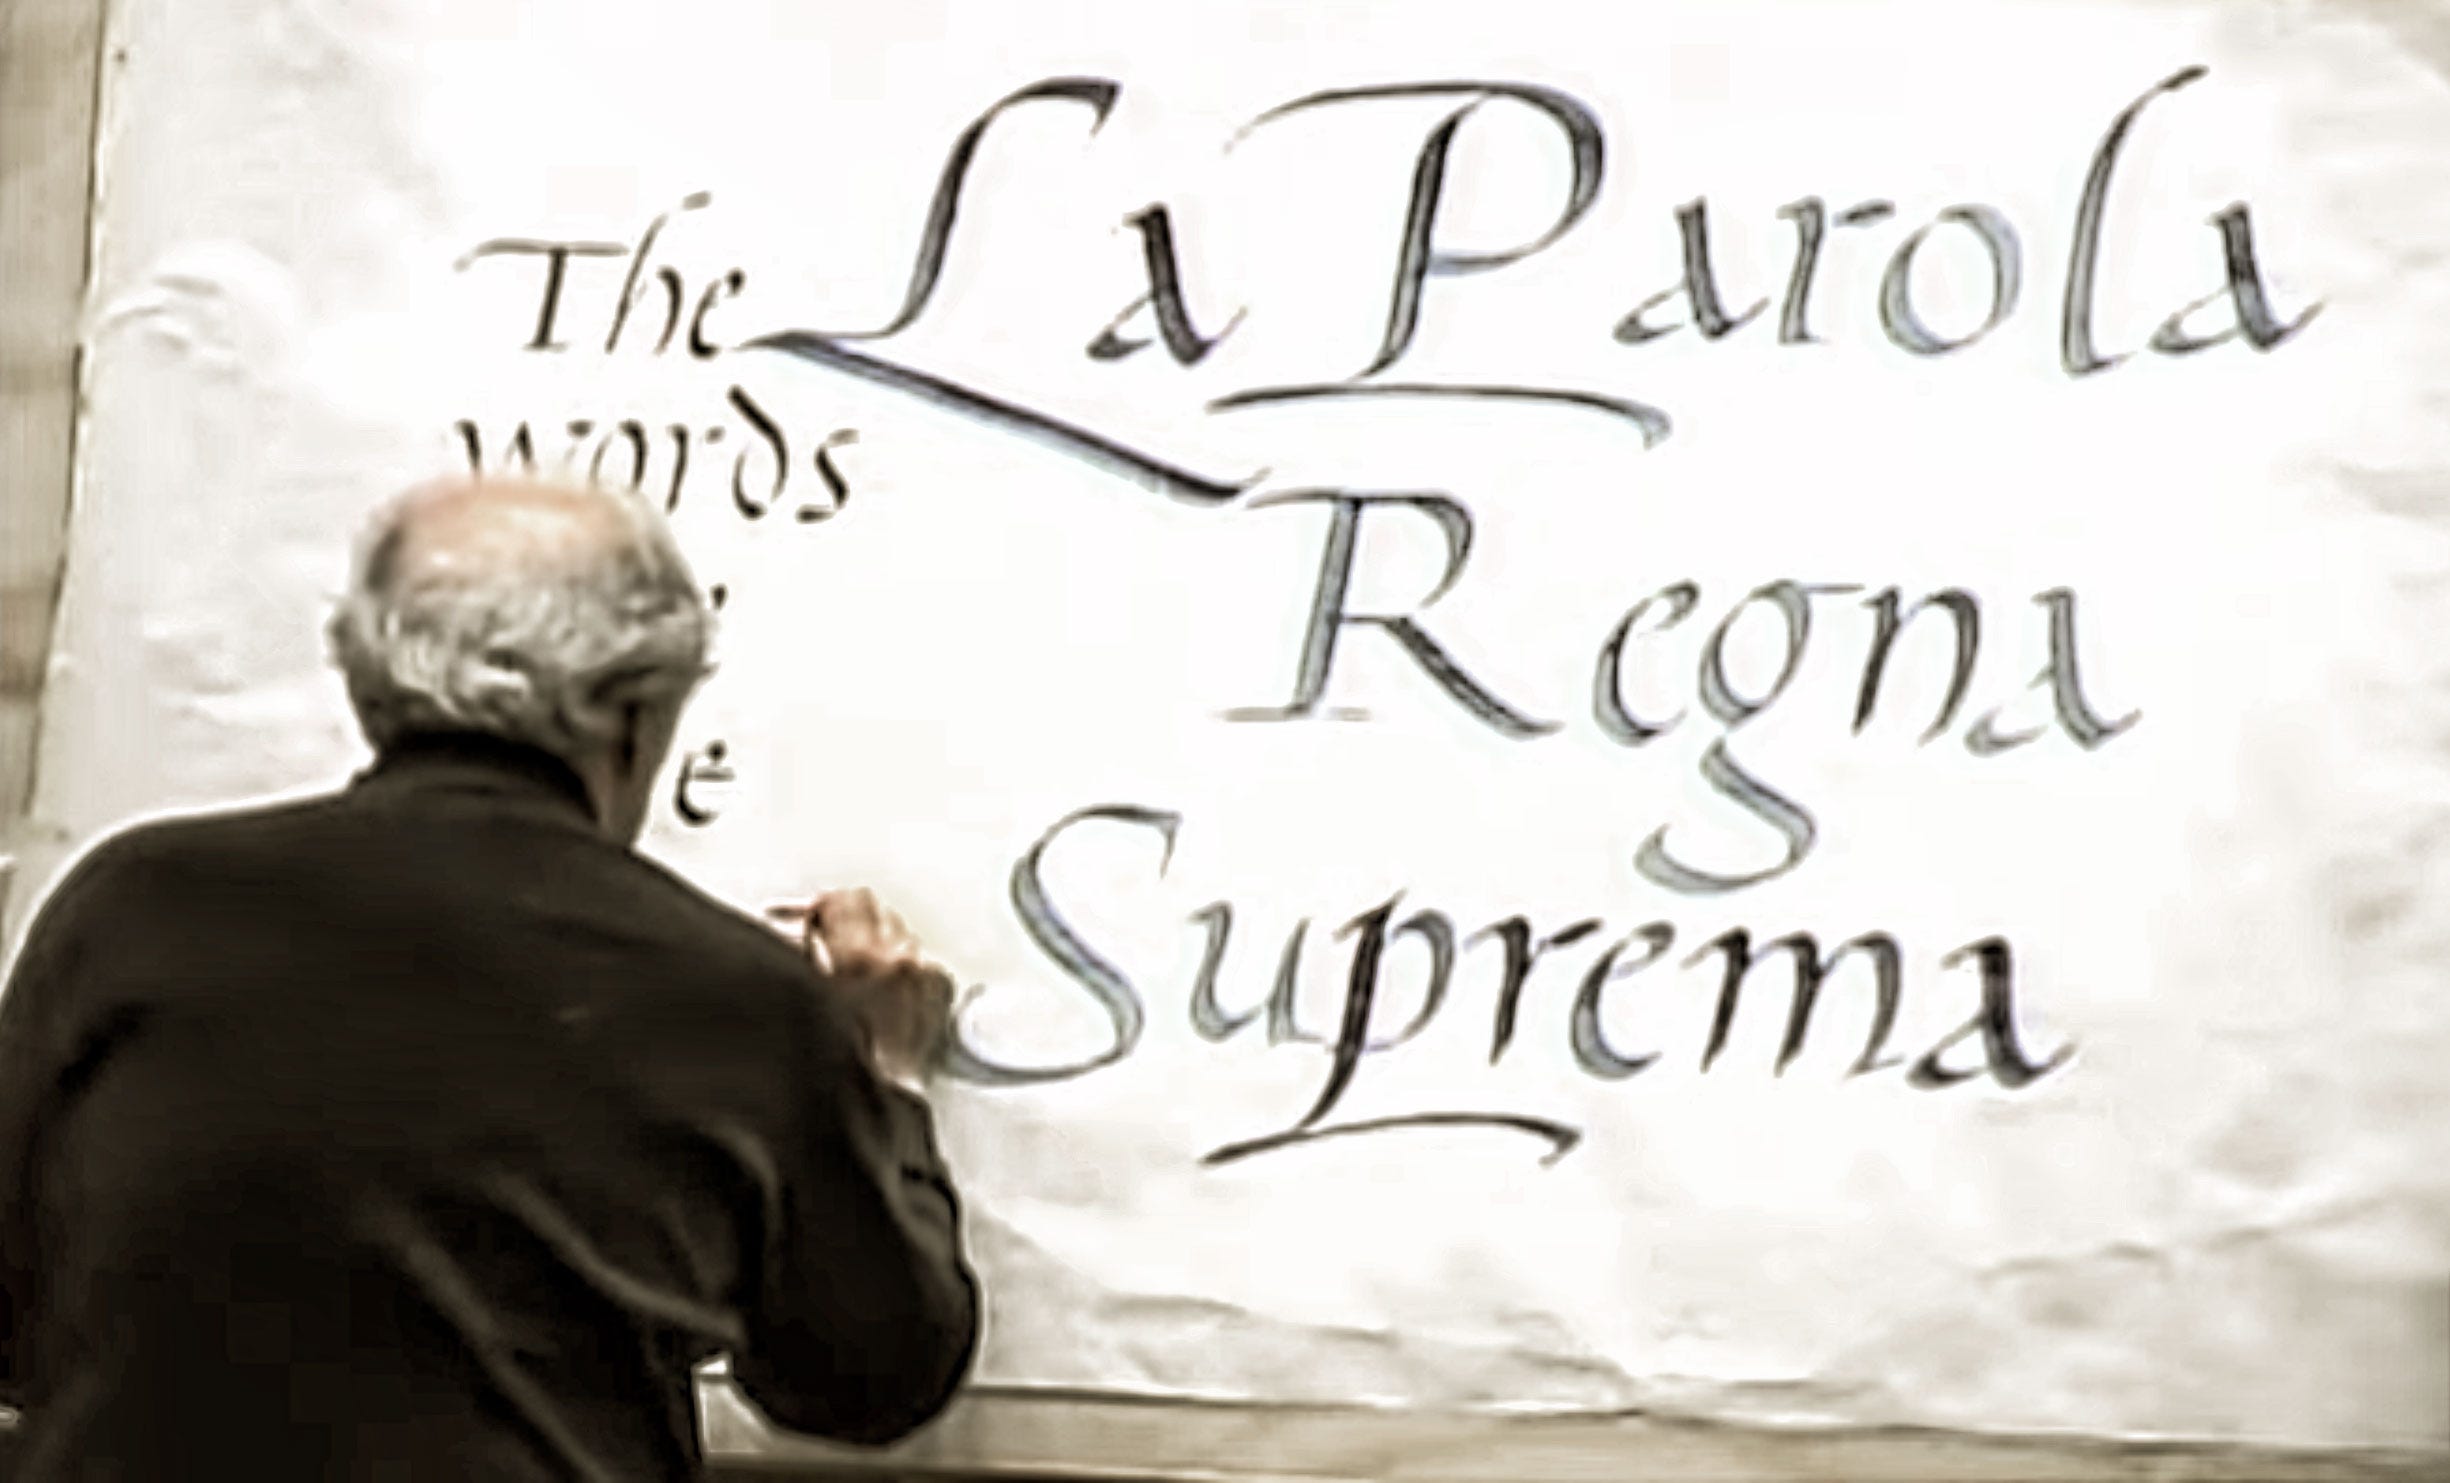 The
words
La Parola
Regna
Suprema